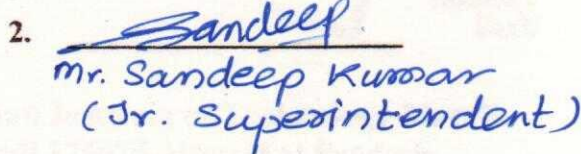 2. Sandeep
Mr. Sandeep Kumar
(Jr. Superintendent)